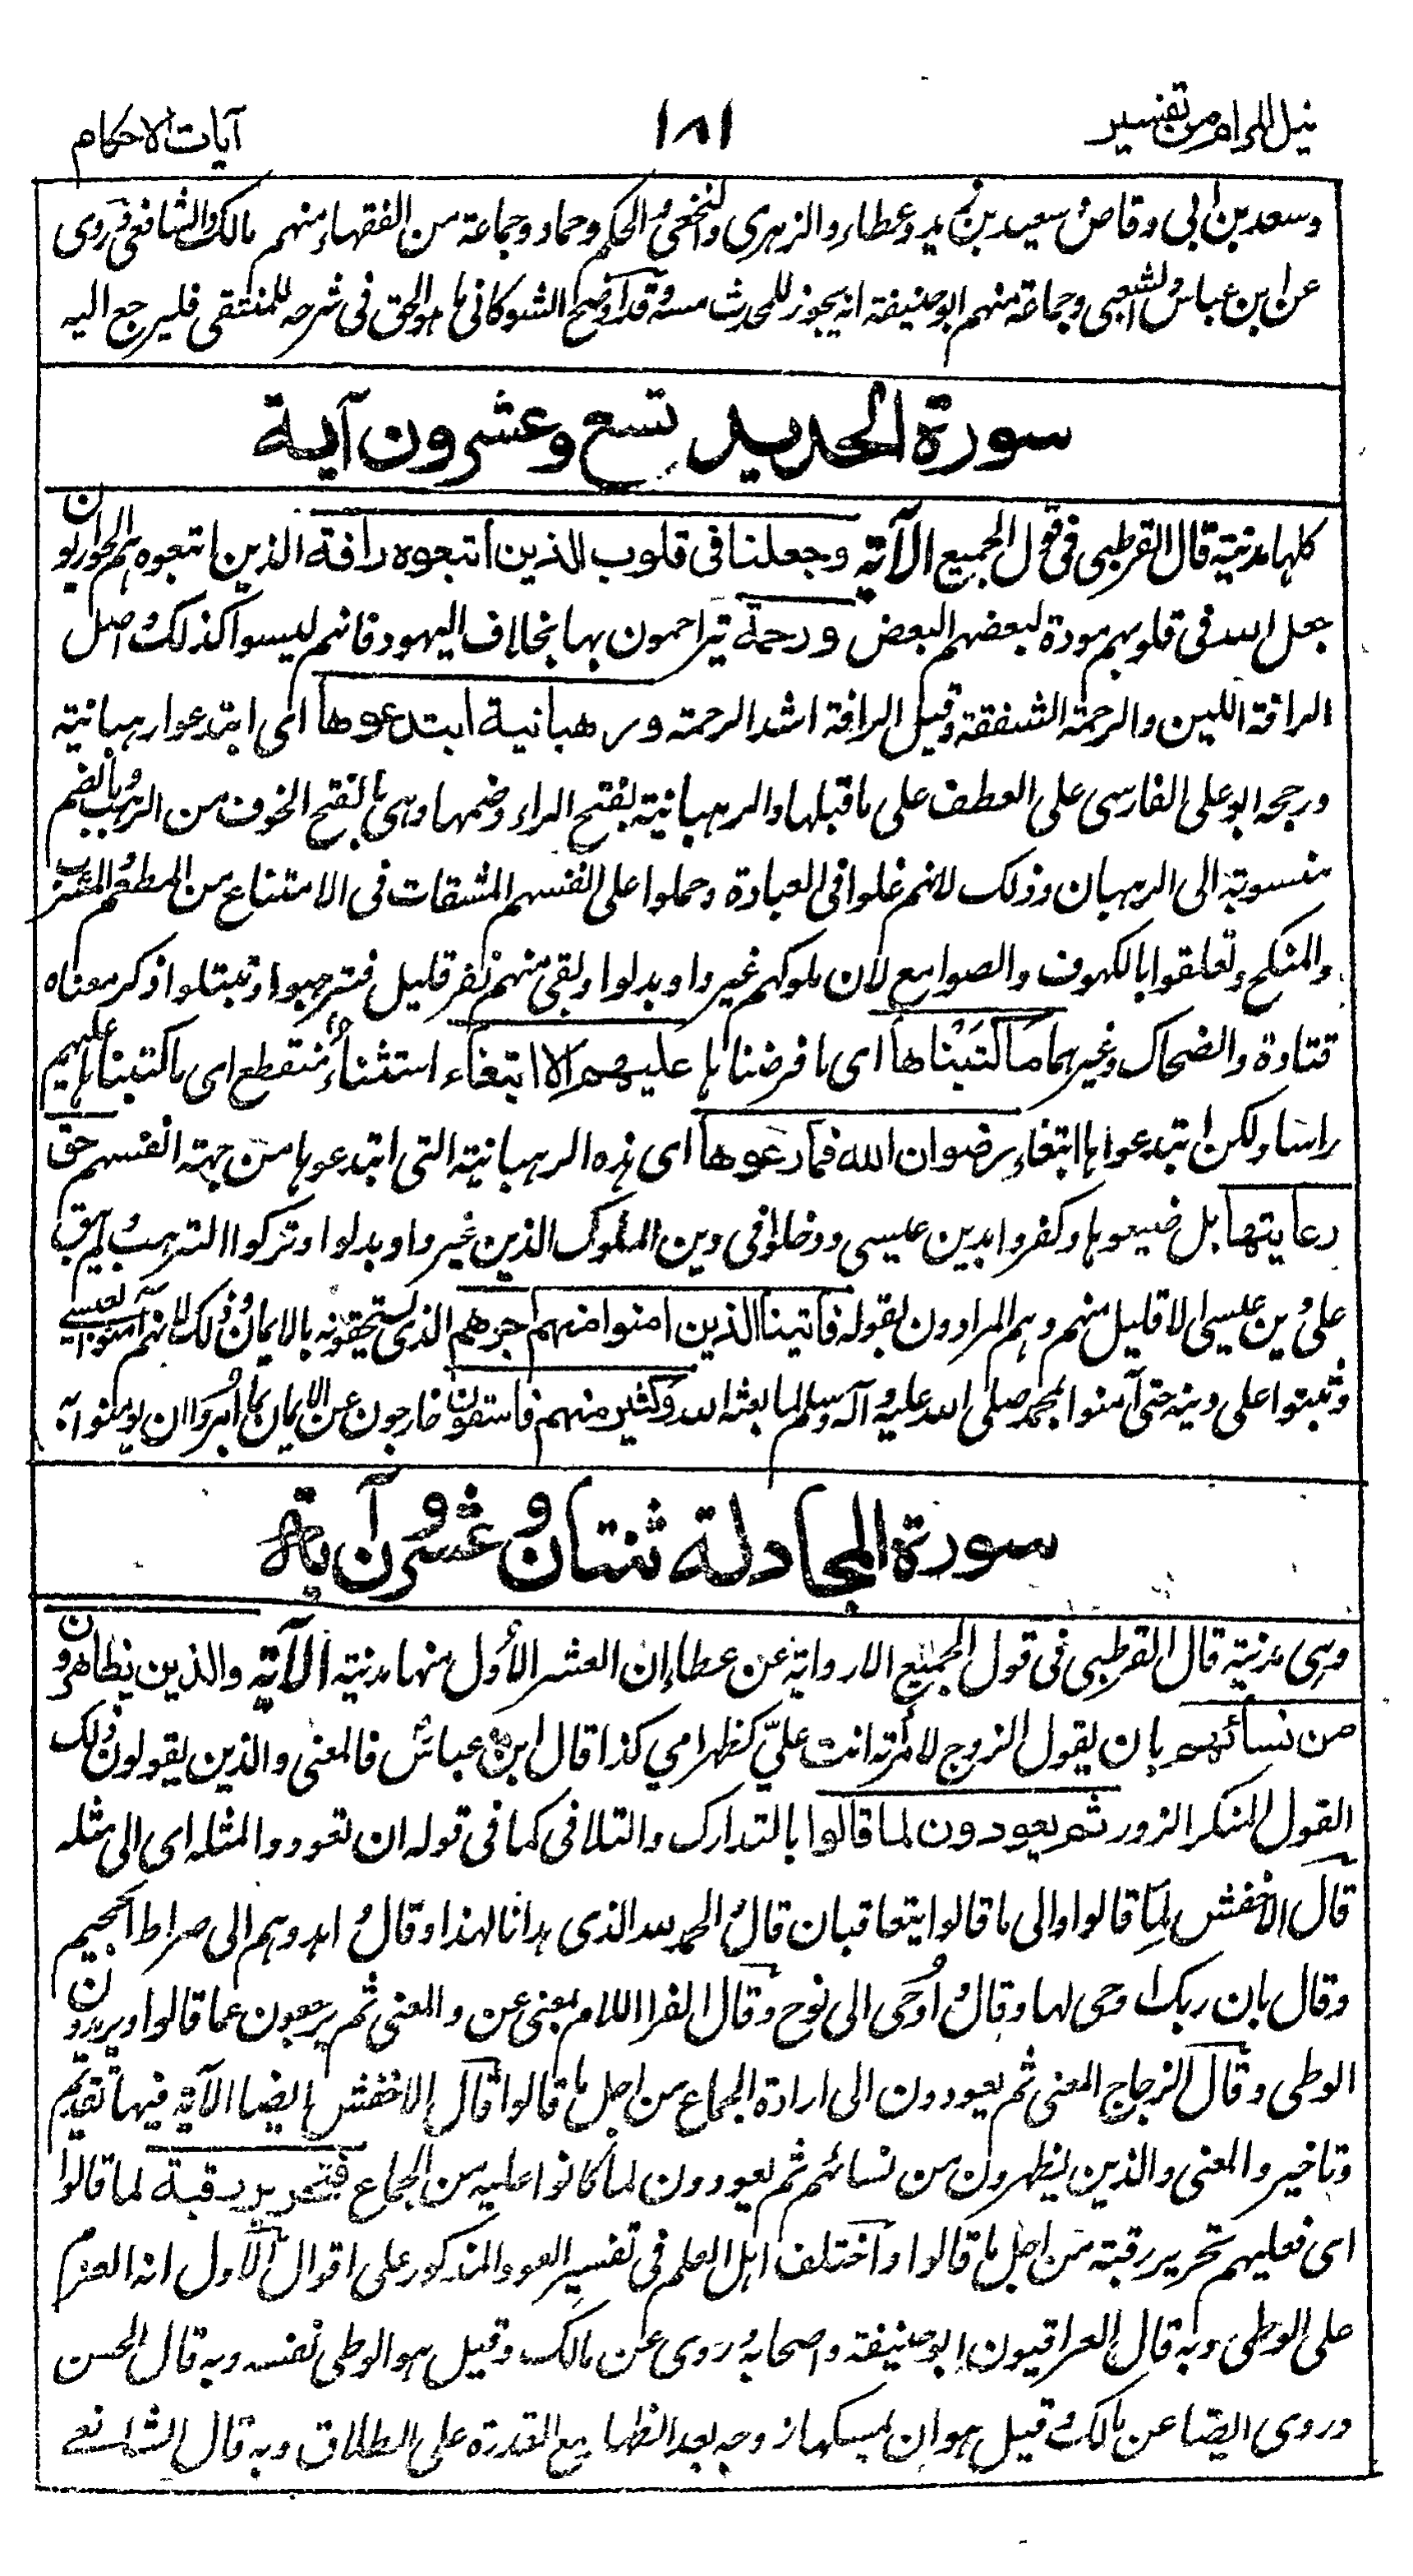 نيل المرام من تفسير
١٨١
آيات الاحكام
وسعد بن ابى وقاص وسعيد بن زيد وعطاء والزهرى والنخعى والحكم وحماد وجماعة من الفقهاء منهم مالك والشافعى وروى
عن ابن عباس والشعبى وجماعة منهم ابو حنيفة انه يجوز للمحدث مسه وقد اوضح الشوكانى ما هو الحق فى شرحه للمنتقى فليرجع اليه
سورة الحديد تسع وعشرون آية
كلها مدنية قال القرطبى فى قول الجميع الآية وجعلنا فى قلوب الذين اتبعوه رافة الذين اتبعوه هم الحواريون
جعل الله فى قلوبهم مودة لبعضهم البعض ورحمة يتراحمون بها بخلاف اليهود فانهم ليسوا كذلك واصل
الرافة اللين والرحمة الشفقة وقيل الرافة اشد الرحمة ورهبانية ابتدعوها اى ابتدعوا رهبانية
ورجحه ابو على الفارسى على العطف على ما قبلها والرهبانية بفتح الراء وضمها وهى بالفتح الخوف من الرهب وبالضم
منسوبة الى الرهبان وذلك لانهم غلوا فى العبادة وحملوا على انفسهم المشقات فى الامتناع من المطعم والمشرب
والمنكح وتعلقوا بالكهوف والصوامع لان ملوكهم غيروا وبدلوا وبقى منهم نفر قليل فترهبوا وتبتلوا ذكر معناه
قتادة والضحاك وغيرهما ما كَتَبْناها اى ما فرضناها عليهم الا ابتغاء استثناء منقطع اى ما كتبناها عليهم
راسا ولكن ابتدعوها ابتغاء رضوان الله فما رعوها اى هذه الرهبانية التى ابتدعوها من جهة انفسهم حق
رعايتها بل ضيعوها وكفروا بدين عيسى ودخلوا فى دين الملوك الذين غيروا وبدلوا وتركوا الترهب ولم يبق
على دين عيسى الا قليل منهم وهم المرادون بقوله فآتينا الذين امنوا منهم اجرهم الذى يستحقونه بالايمان وذلك لانهم امنوا بعيسى
وثبتوا على دينه حتى آمنوا بمحمد صلى الله عليه وآله وسلم لما بعثه الله وكثير منهم فاسقون خارجون عن الايمان بما امروا ان يومنوا به
سورة المجادلة ثنتان وعشرون آية
وهى مدنية قال القرطبى فى قول الجميع الا رواية عن عطاء ان العشر الأول منها مدنية الآية والذين يظاهرون
من نسائهم بان يقول الزوج لامرأته انت علىّ كظهر امي كذا قال ابن عباس فالمعنى والذين يقولون ذلك
القول المنكر الزور ثم يعودون لما قالوا بالتدارك والتلافى كما فى قوله ان تعودوا لمثله اى الى مثله
قال الاخفش لِمَا قالوا والى ما قالوا يتعاقبان قال الحمد لله الذى هدانا لهذا وقال اهدوهم الى صراط الجحيم
وقال بان ربك اوحى لها وقال اُوحى الى نوح وقال الفرا اللام بمعنى عن والمعنى ثم يرجعون عما قالوا ويريدون
الوطى وقال الزجاج المعنى ثم يعودون الى ارادة الجماع من اجل ما قالوا قال الاخفش ايضا الآية فيها تقديم
وتاخير والمعنى والذين يظهرون من نسائهم ثم يعودون لما كانوا عليه من الجماع فتحرير رقبة لما قالوا
اى فعليهم تحرير رقبة من اجل ما قالوا واختلف اهل العلم فى تفسير العود المذكور على اقوال الأول انه العزم
على الوطى وبه قال العراقيون ابو حنيفة واصحابه وروى عن مالك وقيل هو الوطى نفسه وبه قال الحسن
وروى ايضا عن مالك وقيل هو ان يمسكها زوجه بعد الظهار مع القدرة على الطلاق وبه قال الشافعے